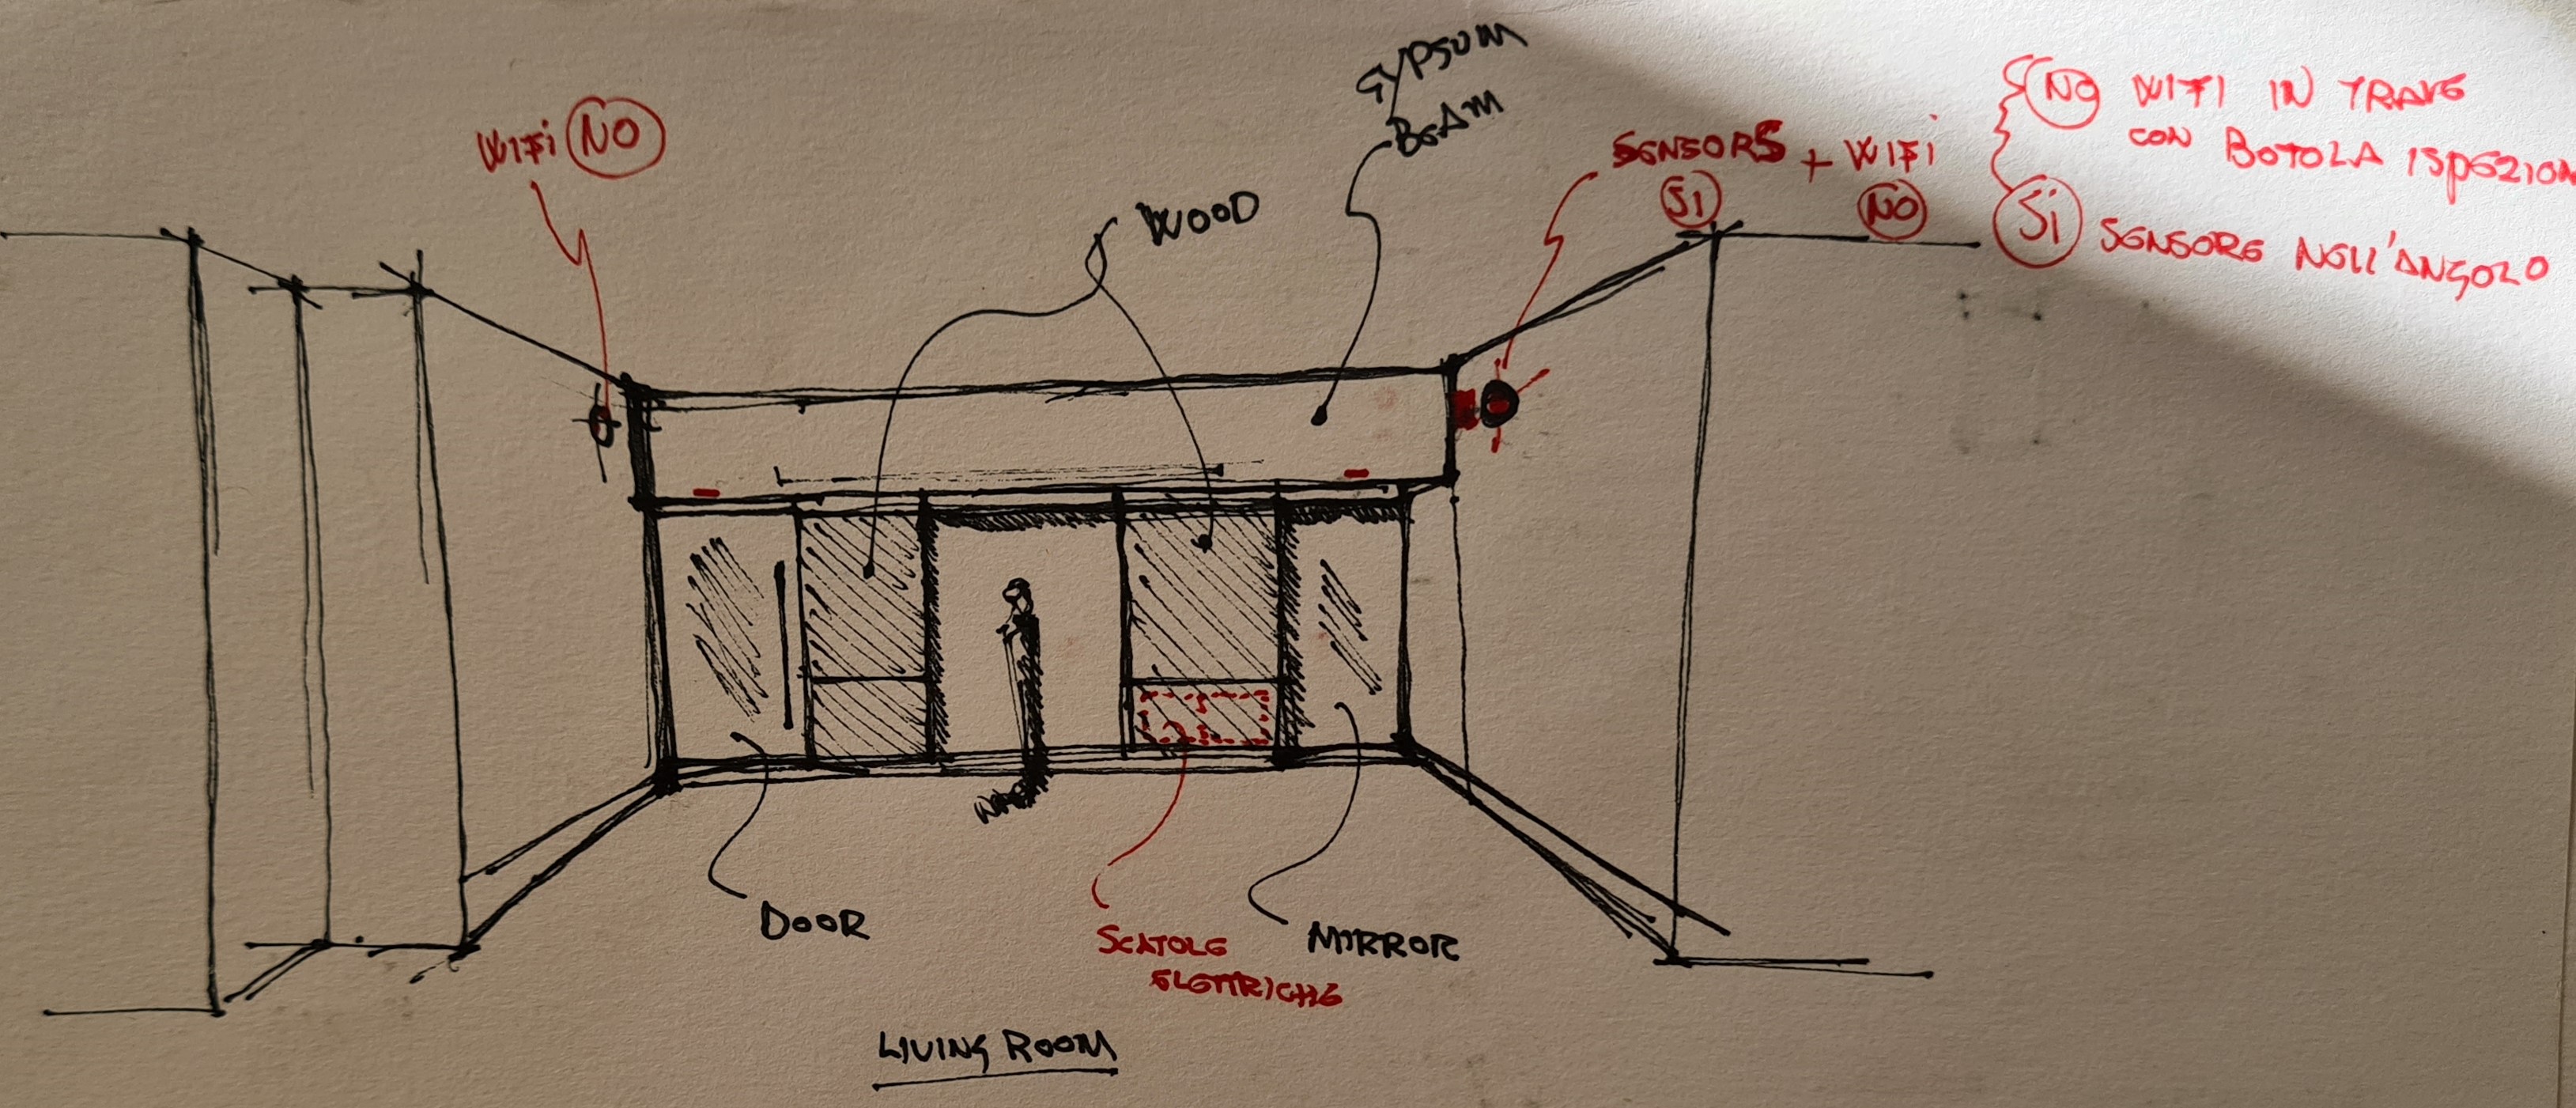 GYPSUM
BEAM
WIFI NO
WOOD
SENSORS + WIFI
SI NO
NO WIFI IN TRAVE
CON BOTOLA ISPEZION
SI SENSORE NELL'ANGOLO
DOOR
SCATOLE
ELETTRICHE
MIRROR
LIVING ROOM